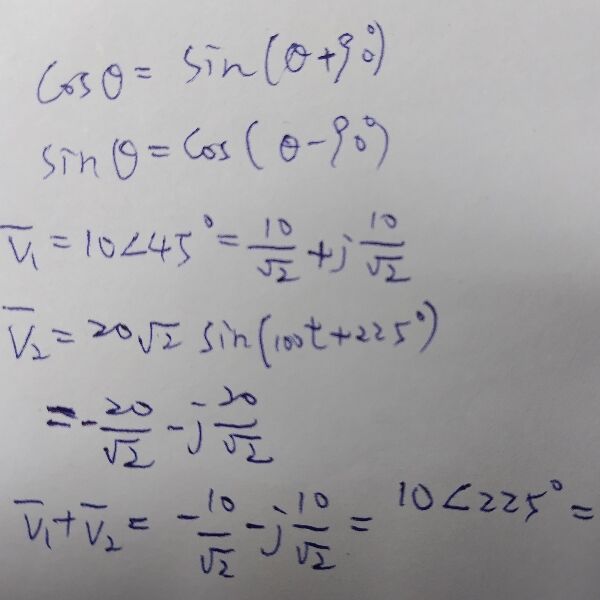 cosθ = sin(θ+90°)
sinθ = cos(θ-90°)
V̅₁ = 10∠45° = 10/√2 + j 10/√2
V̅₂ = 20√2 sin(100t+225°)
= -20/√2 - j 20/√2
V̅₁+V̅₂ = -10/√2 - j 10/√2 = 10∠225° =